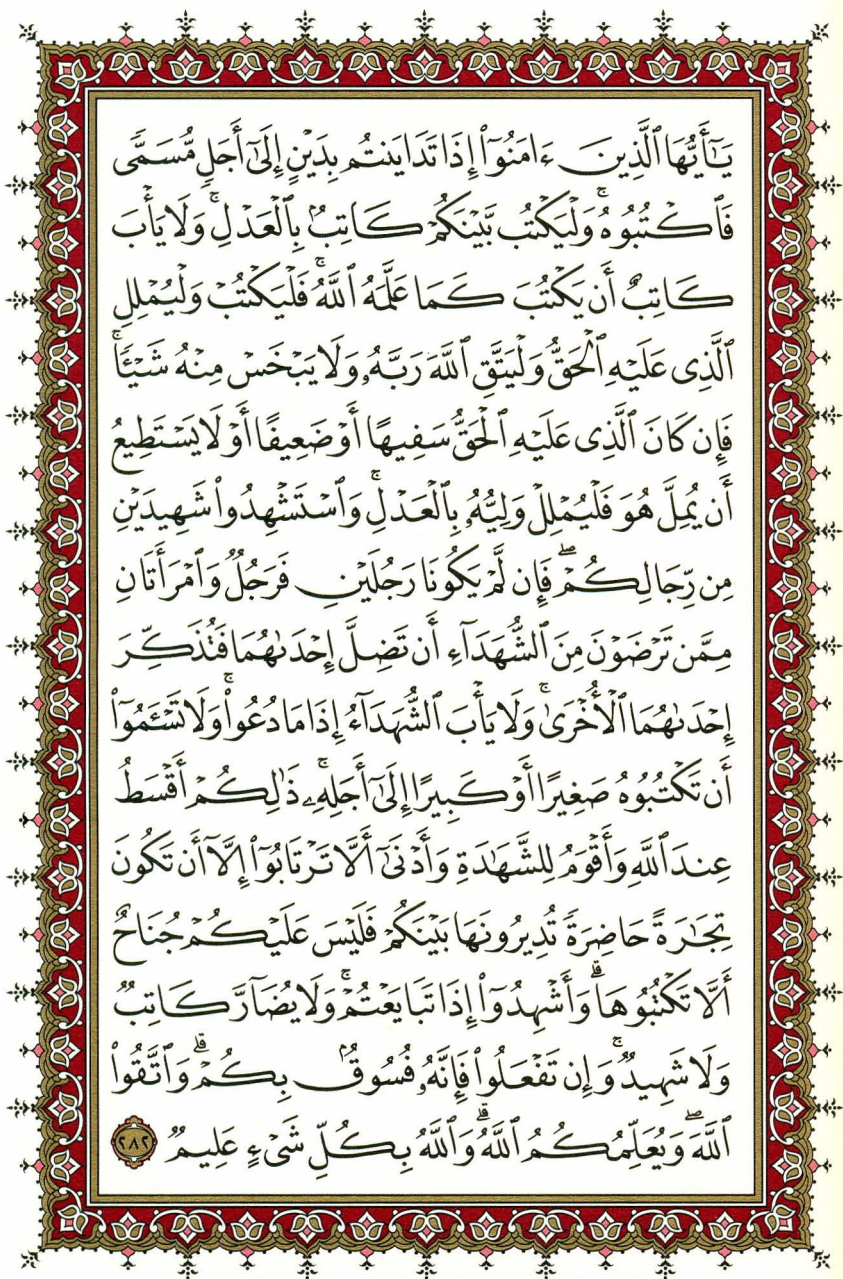 يَٰٓأَيُّهَا ٱلَّذِينَ ءَامَنُوٓا۟ إِذَا تَدَايَنتُم بِدَيْنٍ إِلَىٰٓ أَجَلٍ مُّسَمًّى
فَٱكْتُبُوهُ ۚ وَلْيَكْتُب بَّيْنَكُمْ كَاتِبٌۢ بِٱلْعَدْلِ ۚ وَلَا يَأْبَ
كَاتِبٌ أَن يَكْتُبَ كَمَا عَلَّمَهُ ٱللَّهُ ۚ فَلْيَكْتُبْ وَلْيُمْلِلِ
ٱلَّذِى عَلَيْهِ ٱلْحَقُّ وَلْيَتَّقِ ٱللَّهَ رَبَّهُۥ وَلَا يَبْخَسْ مِنْهُ شَيْـًٔا ۚ
فَإِن كَانَ ٱلَّذِى عَلَيْهِ ٱلْحَقُّ سَفِيهًا أَوْ ضَعِيفًا أَوْ لَا يَسْتَطِيعُ
أَن يُمِلَّ هُوَ فَلْيُمْلِلْ وَلِيُّهُۥ بِٱلْعَدْلِ ۚ وَٱسْتَشْهِدُوا۟ شَهِيدَيْنِ
مِن رِّجَالِكُمْ ۖ فَإِن لَّمْ يَكُونَا رَجُلَيْنِ فَرَجُلٌ وَٱمْرَأَتَانِ
مِمَّن تَرْضَوْنَ مِنَ ٱلشُّهَدَآءِ أَن تَضِلَّ إِحْدَىٰهُمَا فَتُذَكِّرَ
إِحْدَىٰهُمَا ٱلْأُخْرَىٰ ۚ وَلَا يَأْبَ ٱلشُّهَدَآءُ إِذَا مَا دُعُوا۟ ۚ وَلَا تَسْـَٔمُوٓا۟
أَن تَكْتُبُوهُ صَغِيرًا أَوْ كَبِيرًا إِلَىٰٓ أَجَلِهِۦ ۚ ذَٰلِكُمْ أَقْسَطُ
عِندَ ٱللَّهِ وَأَقْوَمُ لِلشَّهَٰدَةِ وَأَدْنَىٰٓ أَلَّا تَرْتَابُوٓا۟ إِلَّآ أَن تَكُونَ
تِجَٰرَةً حَاضِرَةً تُدِيرُونَهَا بَيْنَكُمْ فَلَيْسَ عَلَيْكُمْ جُنَاحٌ
أَلَّا تَكْتُبُوهَا ۗ وَأَشْهِدُوٓا۟ إِذَا تَبَايَعْتُمْ ۚ وَلَا يُضَآرَّ كَاتِبٌ
وَلَا شَهِيدٌ ۚ وَإِن تَفْعَلُوا۟ فَإِنَّهُۥ فُسُوقٌۢ بِكُمْ ۗ وَٱتَّقُوا۟
ٱللَّهَ ۖ وَيُعَلِّمُكُمُ ٱللَّهُ ۗ وَٱللَّهُ بِكُلِّ شَىْءٍ عَلِيمٌ ٢٨٢